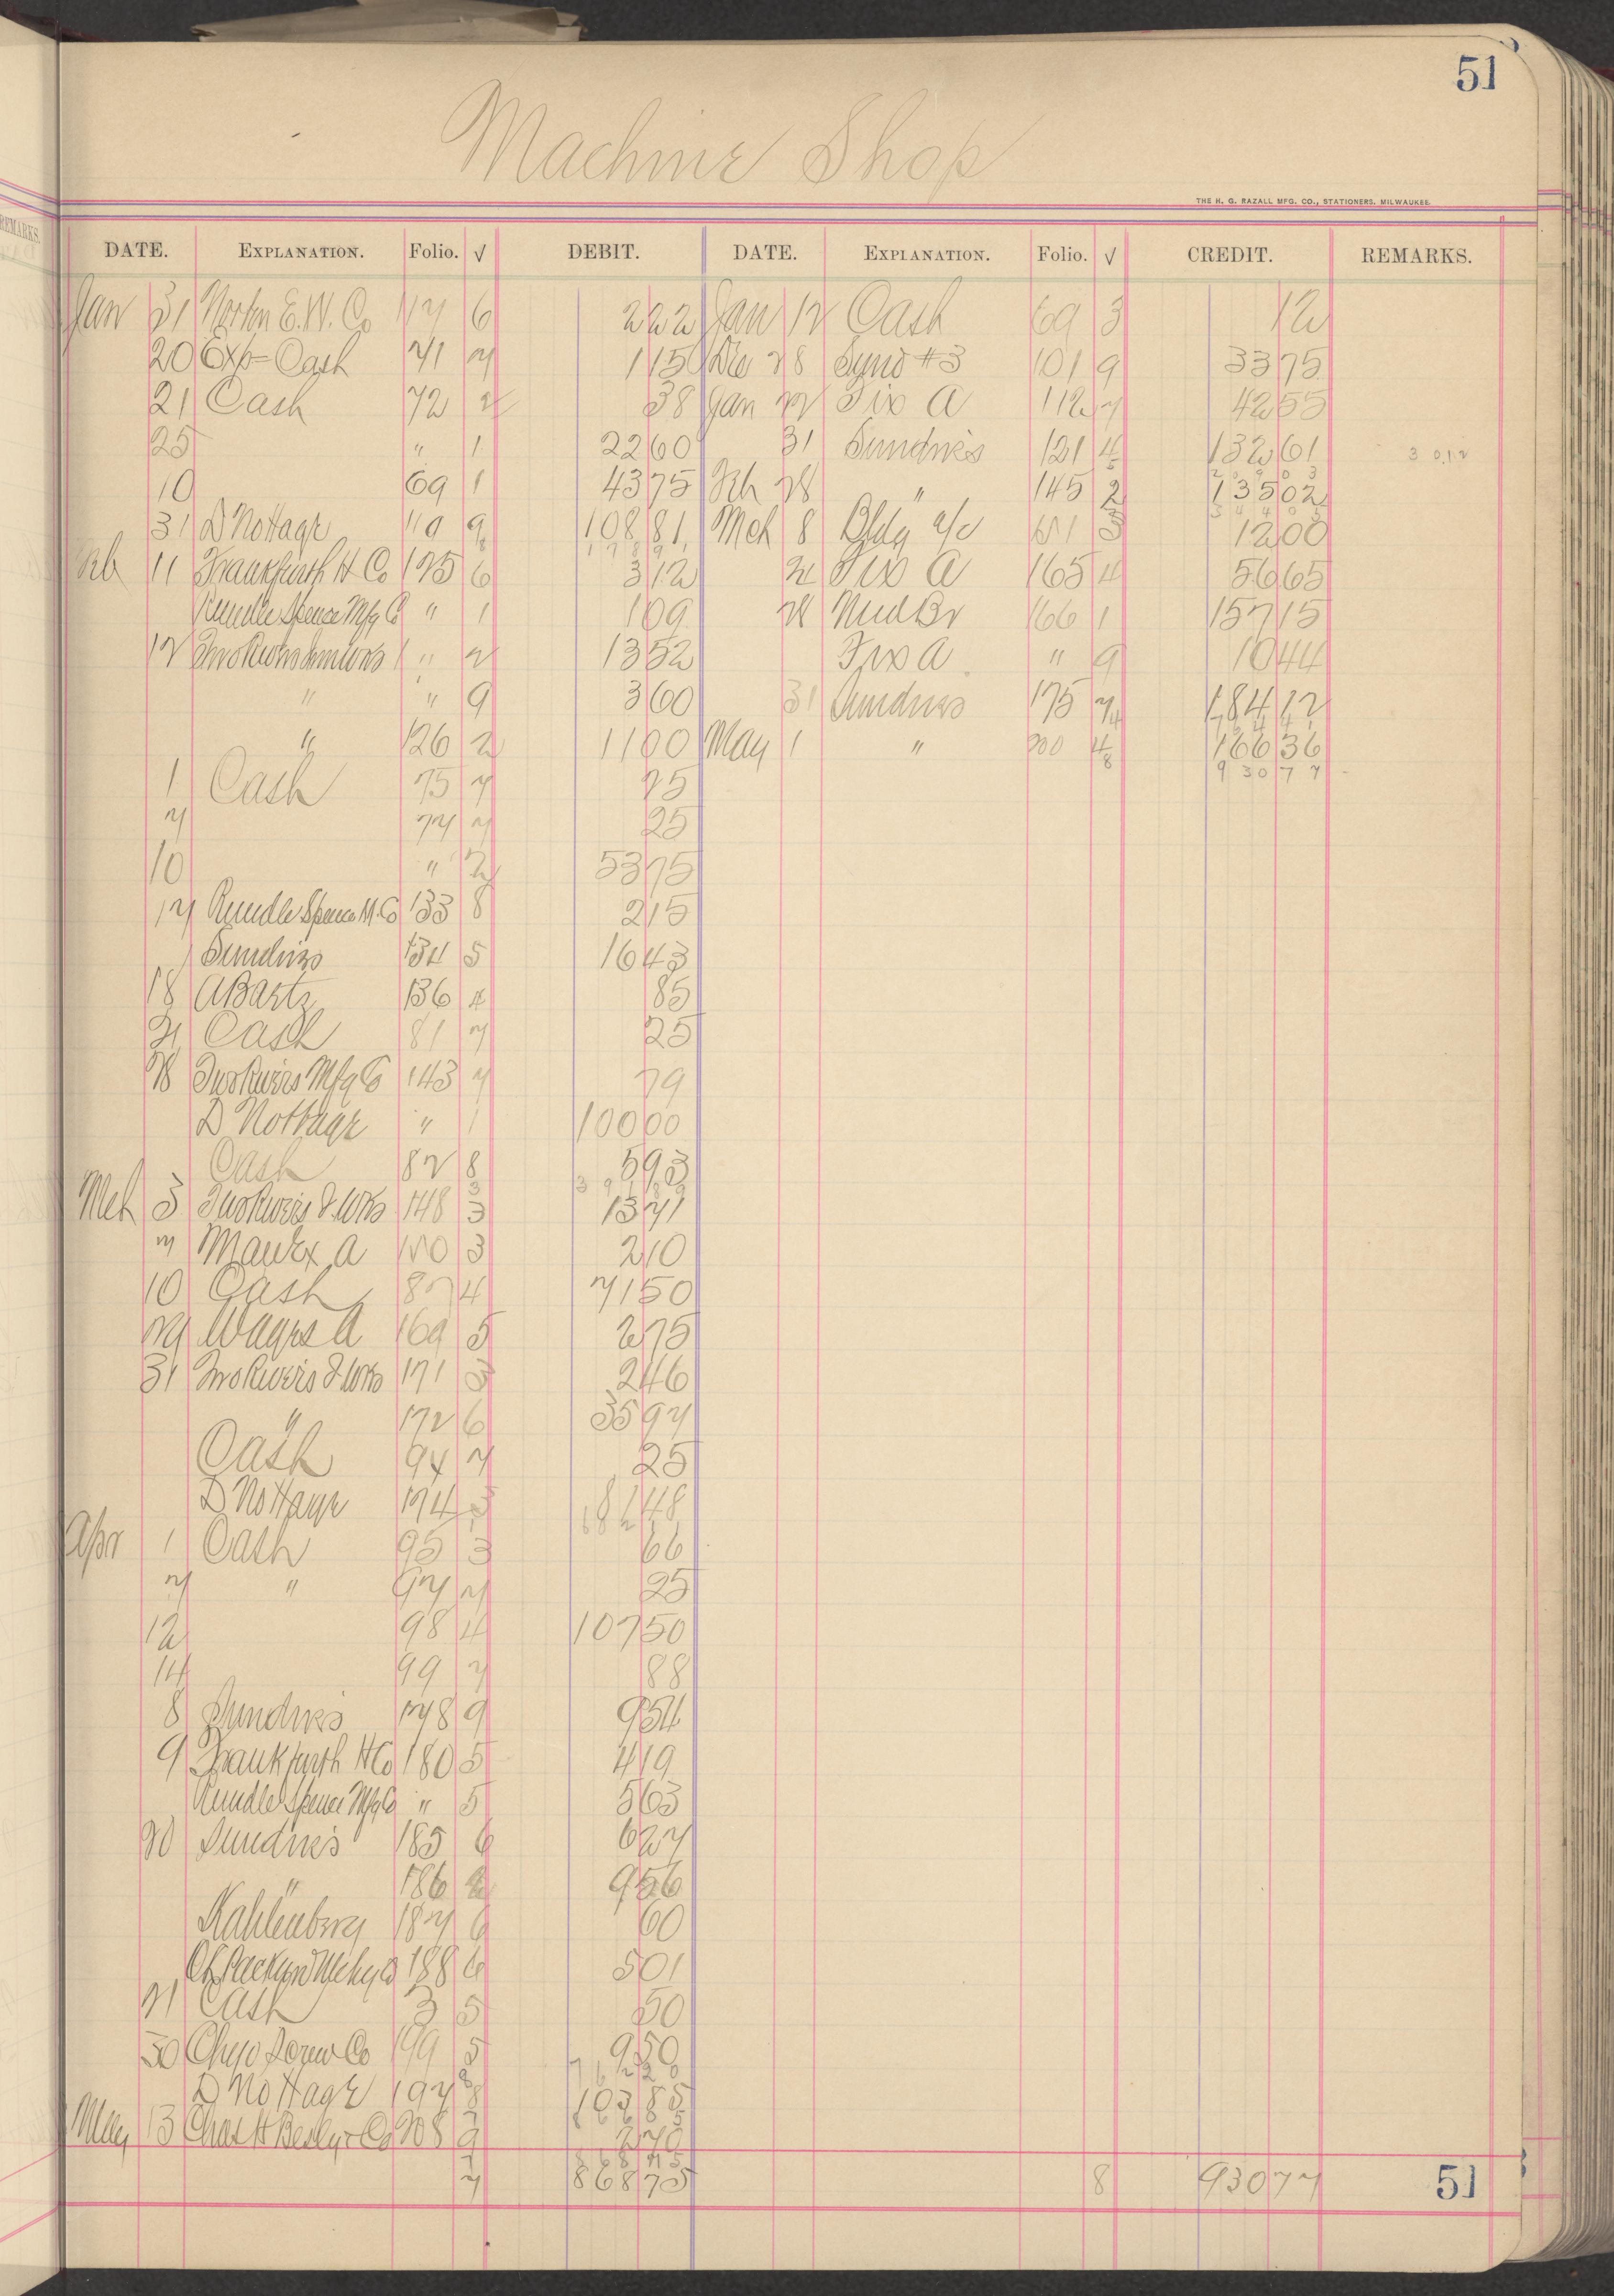 51
Machine Shop
THE H. G. RAZALL MFG. CO., STATIONERS, MILWAUKEE.
REMARKS.
DATE. EXPLANATION. Folio. √ DEBIT. DATE. EXPLANATION. Folio. √ CREDIT. REMARKS.
Jan 31 E. W. Co 117 6 2 22 Jan 12 Cash 69 3 12
20 Exp-Cash 71 7 11 50 Dec 28 Synd #3 101 9 33 75
21 Cash 72 2 38 Jan 22 Fix A 112 7 42 55
25 " 1 22 60 31 Sundries 121 4 132 61
10 69 1 43 75 Feb 28 " 145 2 135 02
31 D Nottage 119 9 108 81 Mch 8 Bldg a/c 151 3 12 00
Feb 11 Frankfurth H Co 125 6 3 12 22 Fix A 165 4 56 65
Rundle Spence Mfg Co " 1 1 09 28 Mud Br 166 1 157 15
12 " 2 13 52 Fix A " 9 10 44
" " 9 3 60 31 Sundries 175 7 184 12
" 126 2 11 00 May 1 " 200 4 166 36
1 Cash 75 7 25 930 77
7 77 7 25
10 " 2 53 75
17 Rundle Spence M. Co 133 8 2 15
Sundries 134 5 16 43
18 A Bartz 136 4 85
21 Cash 81 7 25
28 Two Rivers Mfg Co 143 7 79
D Nottage " 1 100 00
Cash 82 8 5 93
Mch 3 Two Rivers I. Wks 148 3 13 71
7 Man Ex A 150 3 2 10
10 Cash 87 4 71 50
29 Wages A 169 5 2 75
31 Two Rivers I. Wks 171 3 2 46
" 172 6 35 97
Cash 94 7 25
D Nottage 174 3 81 48
Apr 1 Cash 95 3 66
7 " 97 7 25
12 98 4 107 50
14 99 7 88
8 Sundries 178 9 9 54
9 Frankfurth H Co 180 5 4 19
Rundle Spence Mfg Co " 5 5 63
20 Sundries 185 6 6 27
" 186 2 9 56
Kahlenberg 187 6 60
188 6 5 01
21 Cash 3 5 50
30 Chgo Screw Co 199 5 9 50
D Nottage 197 8 103 85
May 13 Chas H Besly & Co 208 9 2 70
7 868 75 8 930 77
51